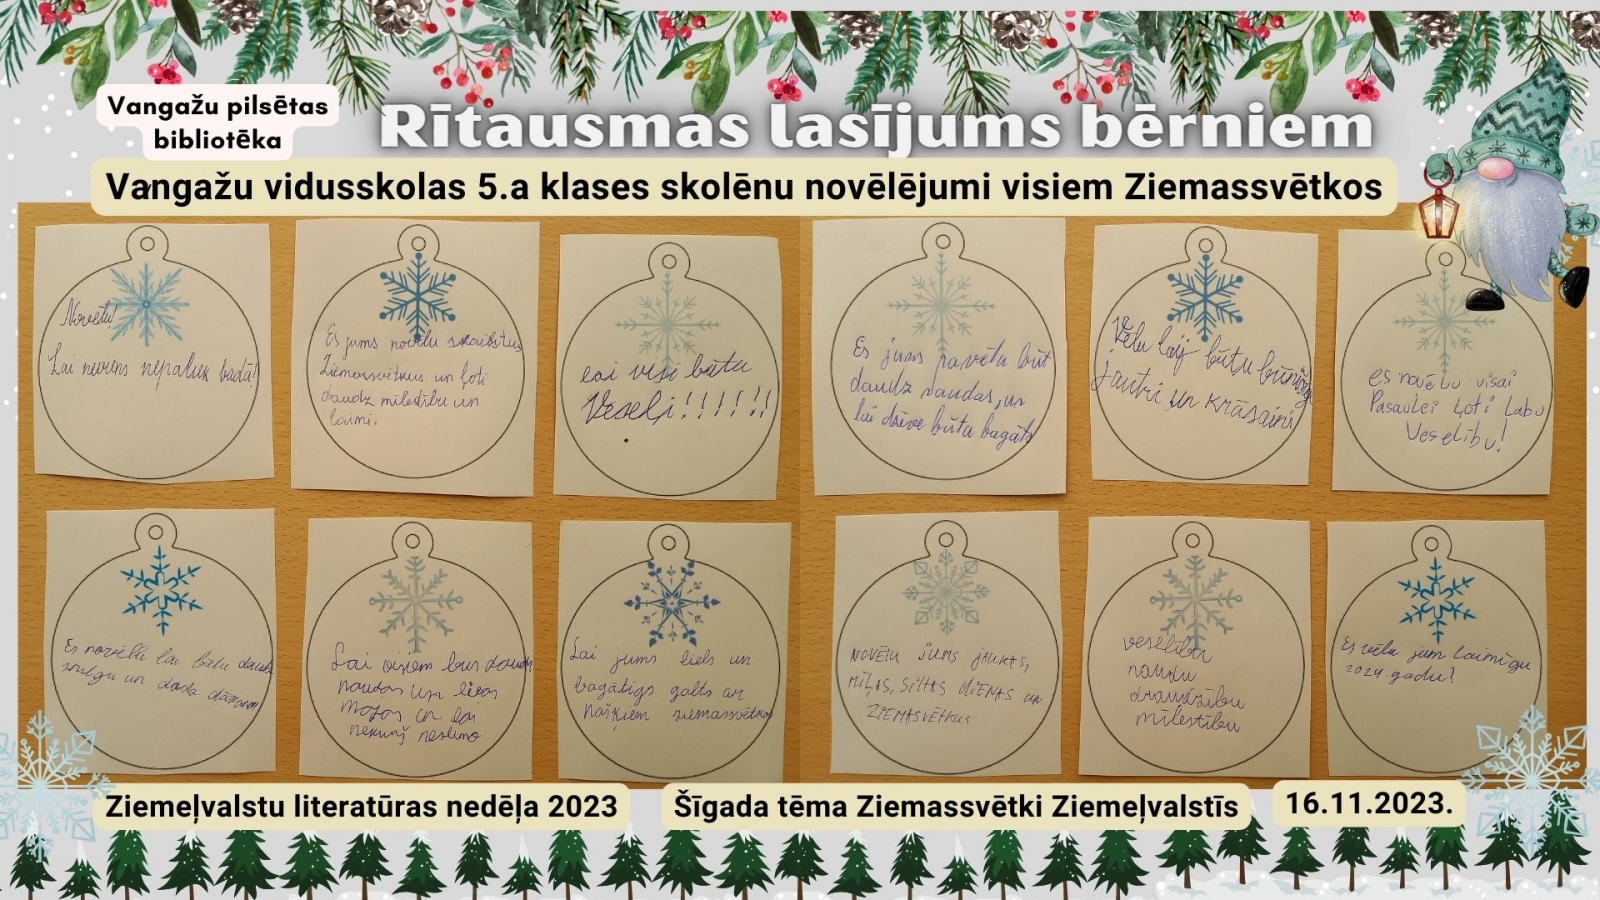 Vangažu pilsētas
bibliotēka
Rītausmas lasījums bērniem
Vangažu vidusskolas 5.a klases skolēnu novēlējumi visiem Ziemassvētkos
Novēlu!
Lai neviens nepaliek badā!
Es jums novēlu skaistus
Ziemassvētkus un ļoti
daudz mīlestību un
laimi.
Lai visi būtu
Veseļi!!!!!!
Es jums navēlu būt
daudz naudas, un
lai dzīve būtu bagāts
Vēlu lai būtu
jautri un krāsaini
es novēlu visai
Pasaulei Ļoti Labu
Veselību!
Es novēlu lai būtu daudz
sniegu un
Lai visiem būs daudz
naudas un lielas
mājas un lai
neslimo
Lai jums liels un
bagātīgs galts ar
našķiem ziemassvētkos
NOVĒLU JUMS JAUKAS,
MĪĻAS, SILTAS DIENAS UN
ZIEMASVĒTKUS
veselību
naudu
draudzību
mīlestību
Es vēlu jum Laimīgu
2024 gadu!
Ziemeļvalstu literatūras nedēļa 2023
Šīgada tēma Ziemassvētki Ziemeļvalstīs
16.11.2023.